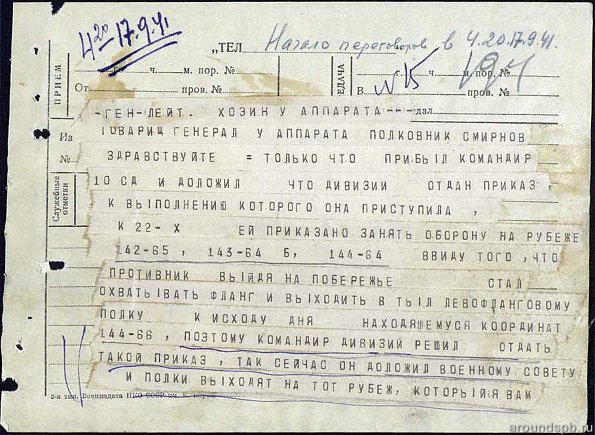 4 20 17.9.41
„ТЕЛ Начало переговоров в 4.20 17.9.41.
ПРИЕМ
г. ч. м. пор. №
От пров. №
ЕДАЧА
г. ч. м. пор. №
В пров. №
N 15
-ГЕН-ЛЕЙТ. ХОЗИН У АППАРАТА --- дал
Из
№
Служебные отметки
ТОВАРИЩ ГЕНЕРАЛ У АППАРАТА ПОЛКОВНИК СМИРНОВ
ЗДРАВСТВУЙТЕ = ТОЛЬКО ЧТО ПРИБЫЛ КОМАНДИР
10 СД И ДОЛОЖИЛ ЧТО ДИВИЗИИ ОТДАН ПРИКАЗ,
К ВЫПОЛНЕНИЮ КОТОРОГО ОНА ПРИСТУПИЛА ,
К 22-Х ЕЙ ПРИКАЗАНО ЗАНЯТЬ ОБОРОНУ НА РУБЕЖЕ
142-65, 143-64 Б, 144-64 ВВИДУ ТОГО ,ЧТО
ПРОТИВНИК ВЫЙДЯ НА ПОБЕРЕЖЬЕ СТАЛ
ОХВАТЫВАТЬ ФЛАНГ И ВЫХОДИТЬ В ТЫЛ ЛЕВОФЛАНГОВОМУ
ПОЛКУ К ИСХОДУ ДНЯ НАХОДЯЩЕМУСЯ КООРДИНАТ
144-66 , ПОЭТОМУ КОМАНДИР ДИВИЗИЙ РЕШИЛ ОТДАТЬ
ТАКОЙ ПРИКАЗ , ТАК СЕЙЧАС ОН ДОЛОЖИЛ ВОЕННОМУ СОВЕТУ
И ПОЛКИ ВЫХОДЯТ НА ТОТ РУБЕЖ, КОТОРЫЙ Я ВАМ
2-я тип. Воениздата НКО СССР им. К.
aroundspb.ru